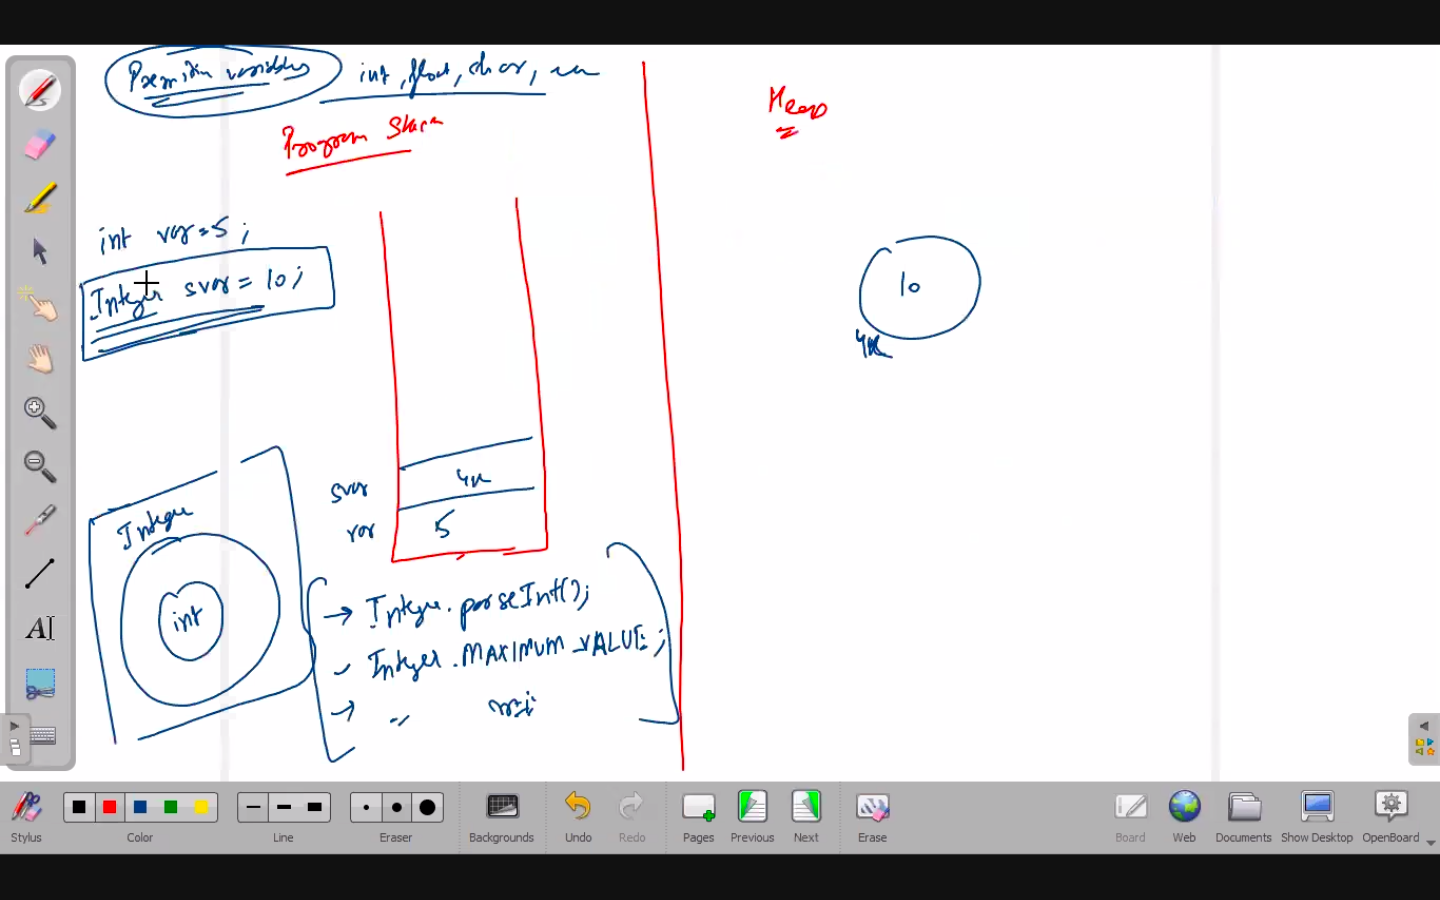 variables int, float, char,
Program Stack
Heap
int var = 5;
Integer svar = 10;
10
4k
svar 4k
var 5
Integer
int
→ Integer.parseInt();
Integer.MAXIMUM_VALUE;
→ "
Stylus Color Line Eraser Backgrounds Undo Redo Pages Previous Next Erase Board Web Documents Show Desktop OpenBoard